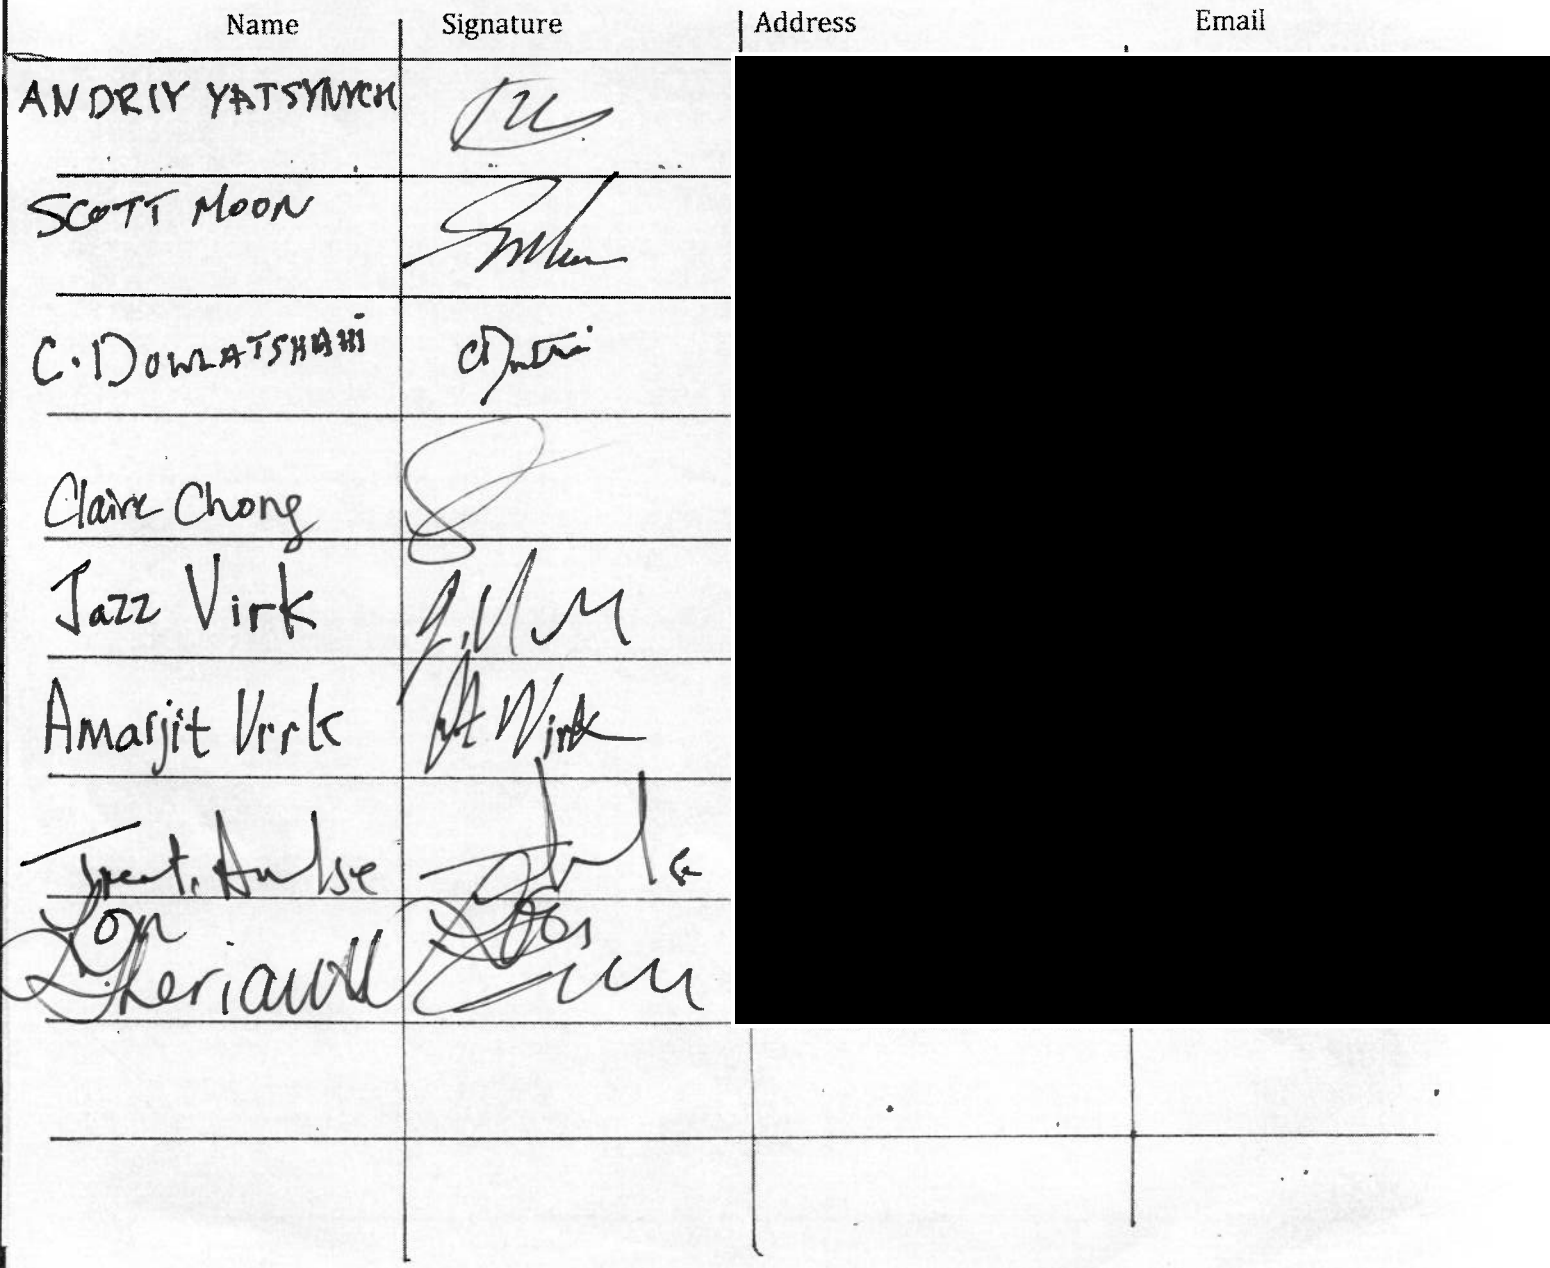 Name Signature Address Email
ANDRIY YATSYNYCH
SCOTT MOON
C. DOWLATSHAHI
Claire Chong
Jazz Virk J. V
Amarjit Virk A Virk
Trent Hulse
Lon
Theriault